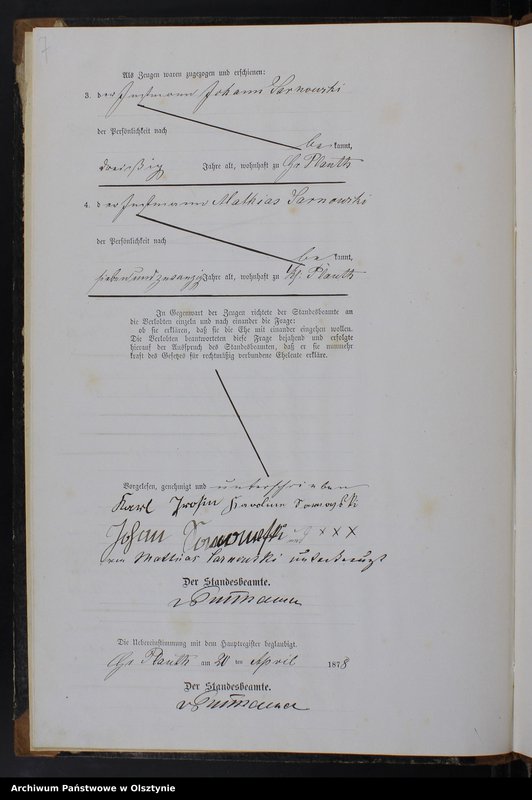 7
Als Zeugen waren zugezogen und erschienen:
3. der Instmann Johann Sarnowski
der Persönlichkeit nach
be kannt,
dreißig Jahre alt, wohnhaft zu Gr Plauth
4. der Instmann Mathias Sarnowski
der Persönlichkeit nach
be kannt,
sieben und zwanzig Jahre alt, wohnhaft zu Kl. Plauth
In Gegenwart der Zeugen richtete der Standesbeamte an
die Verlobten einzeln und nach einander die Frage:
ob sie erklären, daß sie die Ehe mit einander eingehen wollen.
Die Verlobten beantworteten diese Frage bejahend und erfolgte
hierauf der Ausspruch des Standesbeamten, daß er sie nunmehr
kraft des Gesetzes für rechtmäßig verbundene Eheleute erkläre.
Vorgelesen, genehmigt und unterschrieben
Karl Karoline
Johan Sarnowski und x x x
von Mathias Sarnowski unterkreuzt
Der Standesbeamte.
Die Uebereinstimmung mit dem Hauptregister beglaubigt.
Gr Plauth am 20 ten April 1878
Der Standesbeamte.
Archiwum Państwowe w Olsztynie